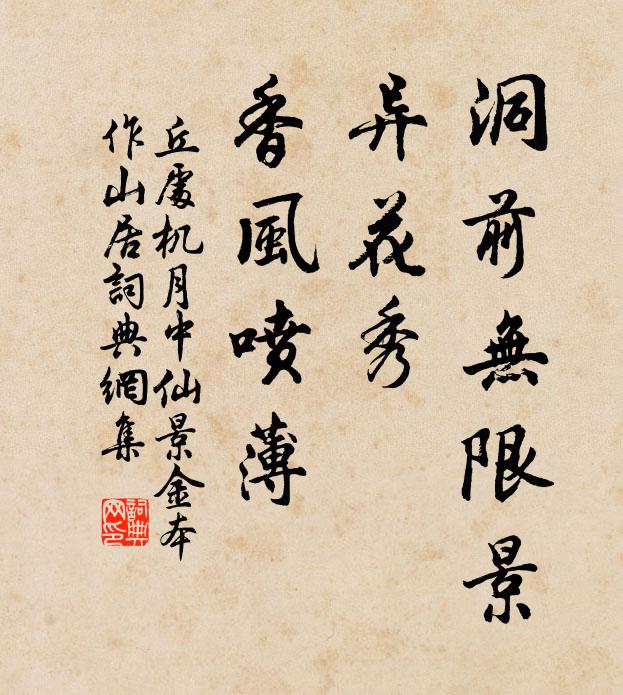 洞前無限景
异花秀
香風噴薄
丘處机月中仙景金本
作山居詞典網集
詞典
网印